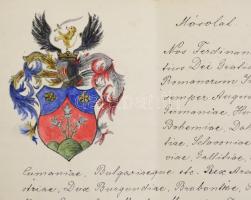 Másolat
Nos Ferdinan
tius Dei Gratia
Romanorum
semper Augus
Germaniae Hu
Bohemiae, Da
tiae Sclavoni
viae, Gallitiae
Cumaniae, Bulgariaeque etc. Rex
striae, Dux Burgundiae, Brabantiae,